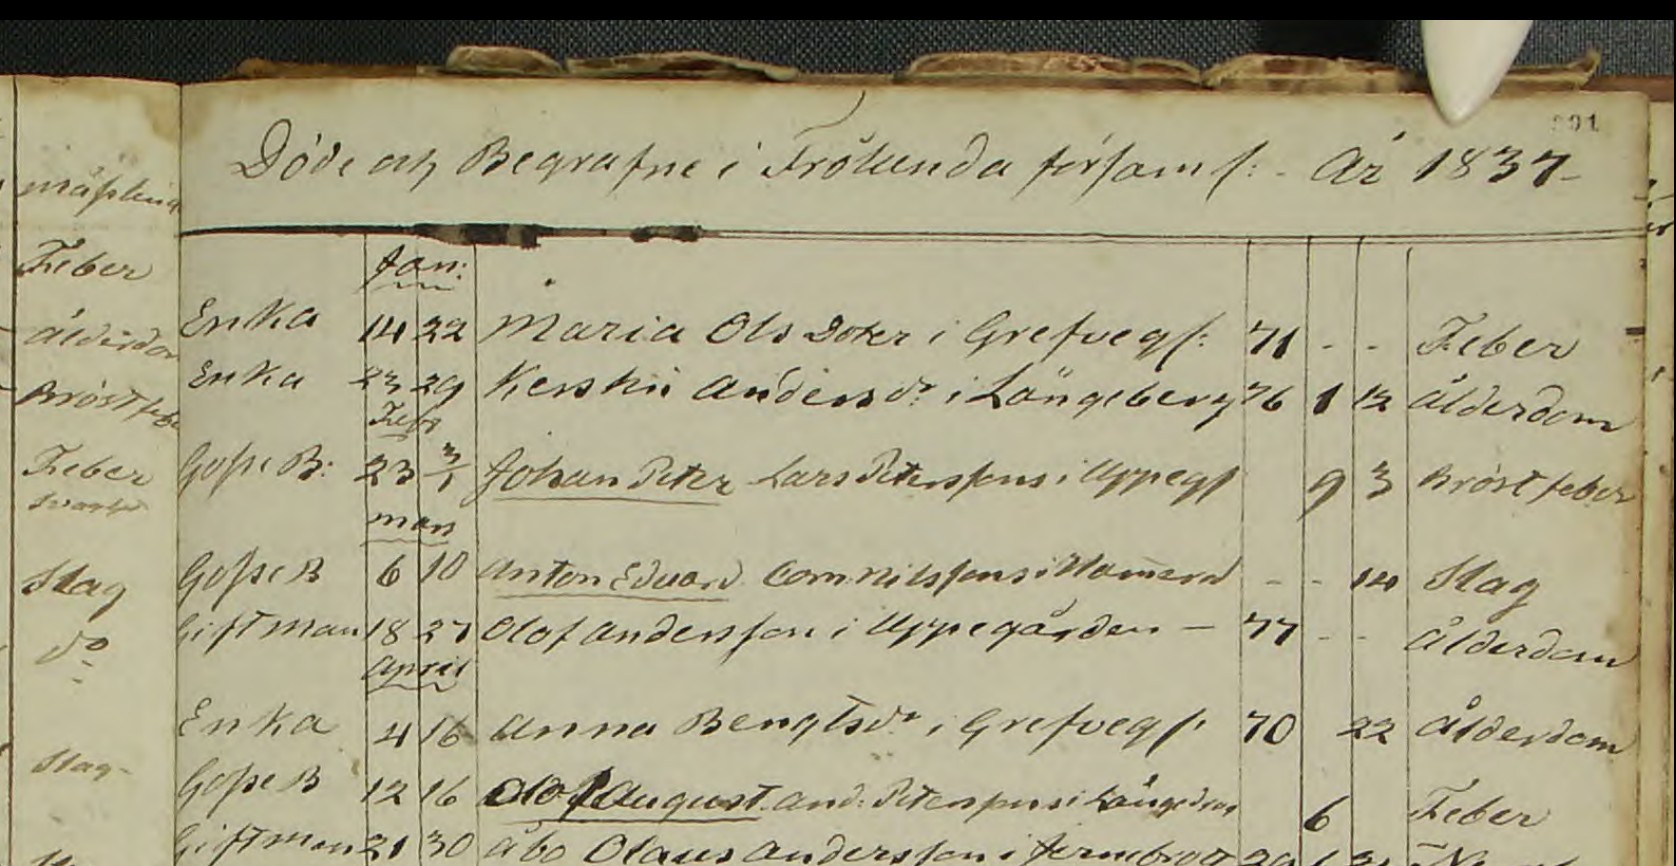 Döde och Begrafne i Frölunda församl: - År 1837-
Jan:
Enka 14 22 Maria Ols Doter i Grefvegl: 71 - - Feber
Enka 23 29 Kerstin Andersdr: i Långeberg 76 1 12 Ålderdom
Febr
Gosse B: 23 3/1 Johan Peter Lars Peterssons i Uppegl 9 3 Bröstfeber
mars
Gosse B 6 10 Anton Eduard Com Nilssons i - - 14 Slag
Gift Man 18 27 Olof Andersson i Uppegården - 77 - - Ålderdom
April
Enka 4 16 Anna Bengtsdr i Grefvegl: 70 22 Ålderdom
Gosse B 12 16 Olof August And: Peterssons i 6 Feber
Gift Man 21 30 Åbo Olaus Andersson i Jernbrott
Feber
Ålderdom
Bröstfeber
Feber
Slag
do
Slag-